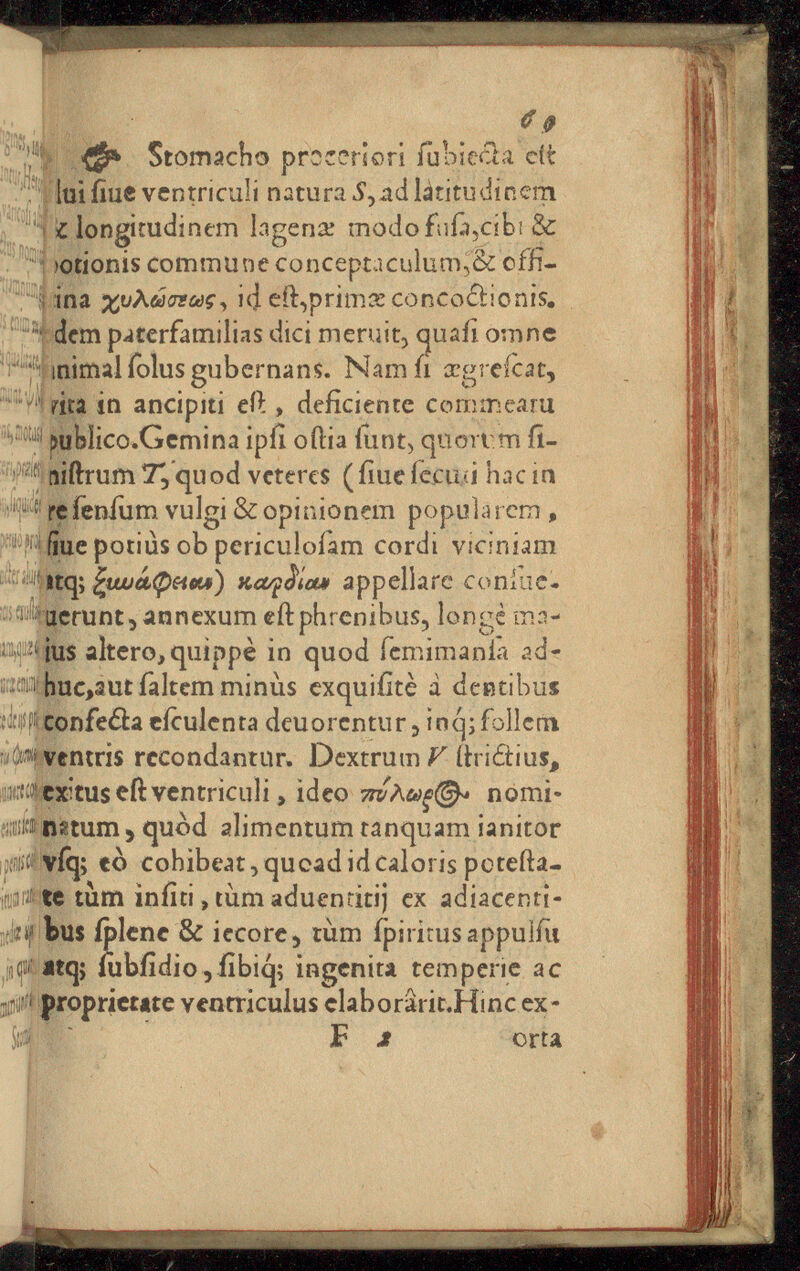 69
Stomacho proceriori ſubiecta eſt
lui ſiue ventriculi natura S, ad latitudinem
& longitudinem lagenæ modo fuſa, cibi &
potionis commune conceptaculum, & offi-
ina χυλώσεως, id eſt, primæ concoctionis.
dem paterfamilias dici meruit, quaſi omne
animal ſolus gubernans. Nam ſi ægreſcat,
vita in ancipiti eſt, deficiente commeatu
publico. Gemina ipſi oſtia ſunt, quorum ſi-
niſtrum T, quod veteres (ſiue ſecuti hac in
re ſenſum vulgi & opinionem popularem,
ſiue potiùs ob periculoſam cordi viciniam
atq; ξυνάφειαν) καρδίαν appellare conſue-
uerunt, annexum eſt phrenibus, longè ma-
ius altero, quippè in quod ſemimanſa ad-
huc, aut ſaltem minùs exquiſitè à dentibus
confecta eſculenta deuorentur, inq; follem
ventris recondantur. Dextrum V ſtrictius,
exitus eſt ventriculi, ideo πύλωρος nomi-
natum, quòd alimentum tanquam ianitor
vſq; eò cohibeat, quoad id caloris poteſta-
te tùm inſiti, tùm aduentitij ex adiacenti-
bus ſplene & iecore, tùm ſpiritus appulſu
atq; ſubſidio, ſibiq; ingenita temperie ac
proprietate ventriculus elaborârit. Hinc ex-
F 3 orta